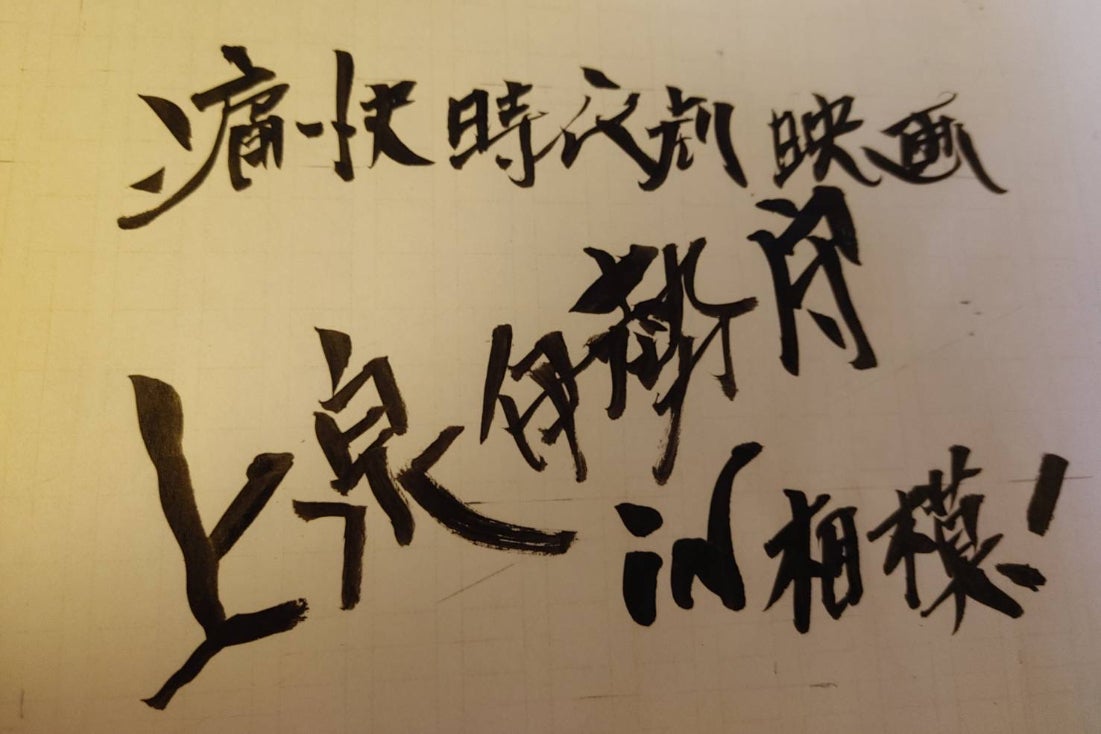 痛快時代劇映画
上泉伊勢守
in相模!